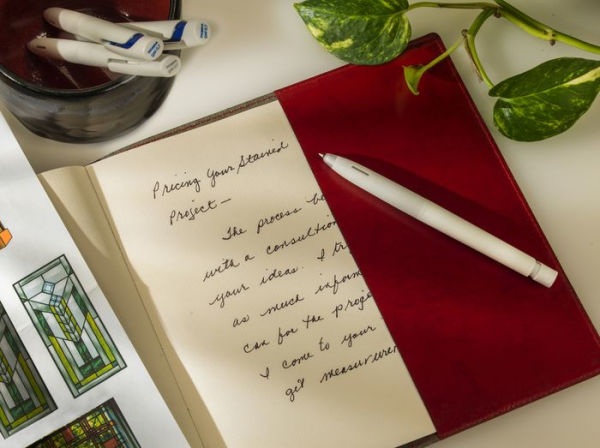 Pricing Your Stained
Project—
The process be
with a consultion
your ideas. I tr
as much inform
can for the proje
I come to your
get measuremen